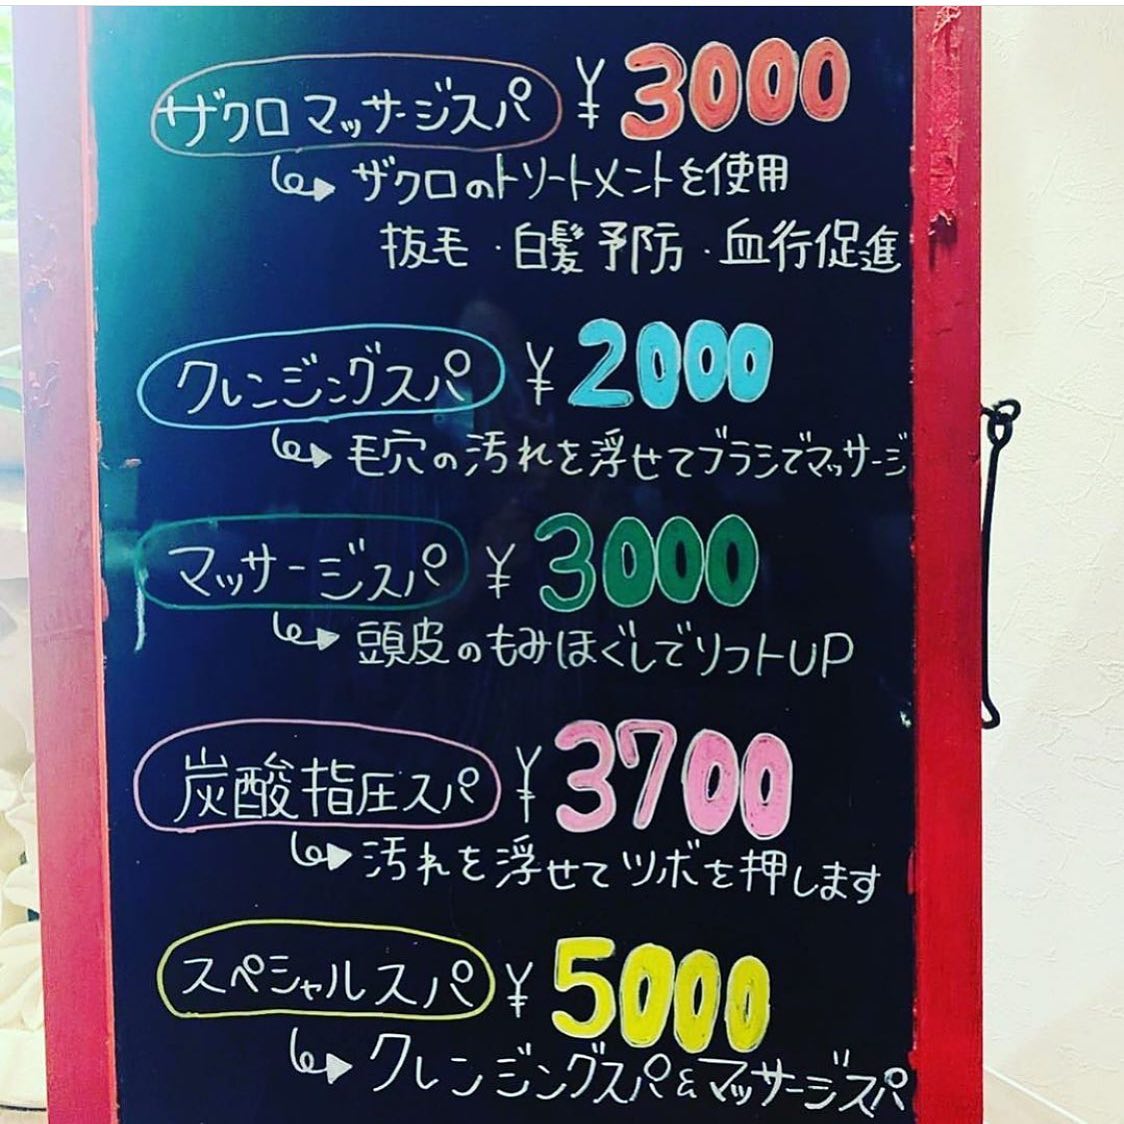 ザクロマッサージスパ ¥3000
ザクロのトリートメントを使用
抜毛・白髪予防・血行促進
クレンジングスパ ¥2000
毛穴の汚れを浮せてブラシでマッサージ
マッサージスパ ¥3000
頭皮のもみほぐしでリフトUP
炭酸指圧スパ ¥3700
汚れを浮せてツボを押します
スペシャルスパ ¥5000
クレンジングスパ&マッサージスパ